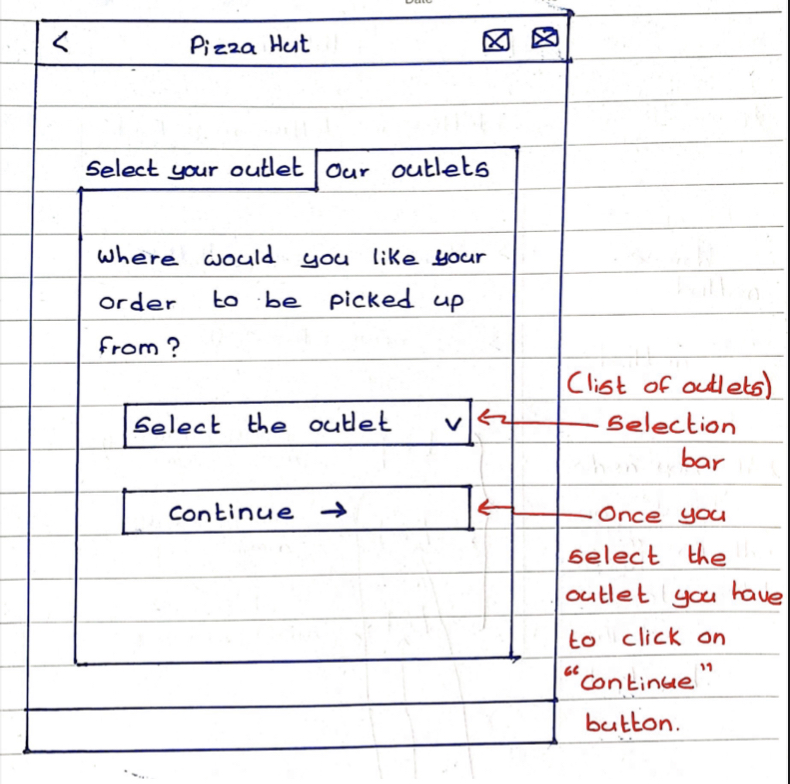 <
Pizza Hut
Select your outlet
Our outlets
Where would you like your
order to be picked up
from?
Select the outlet v
Continue →
(list of outlets)
Selection
bar
Once you
select the
outlet you have
to click on
"Continue"
button.